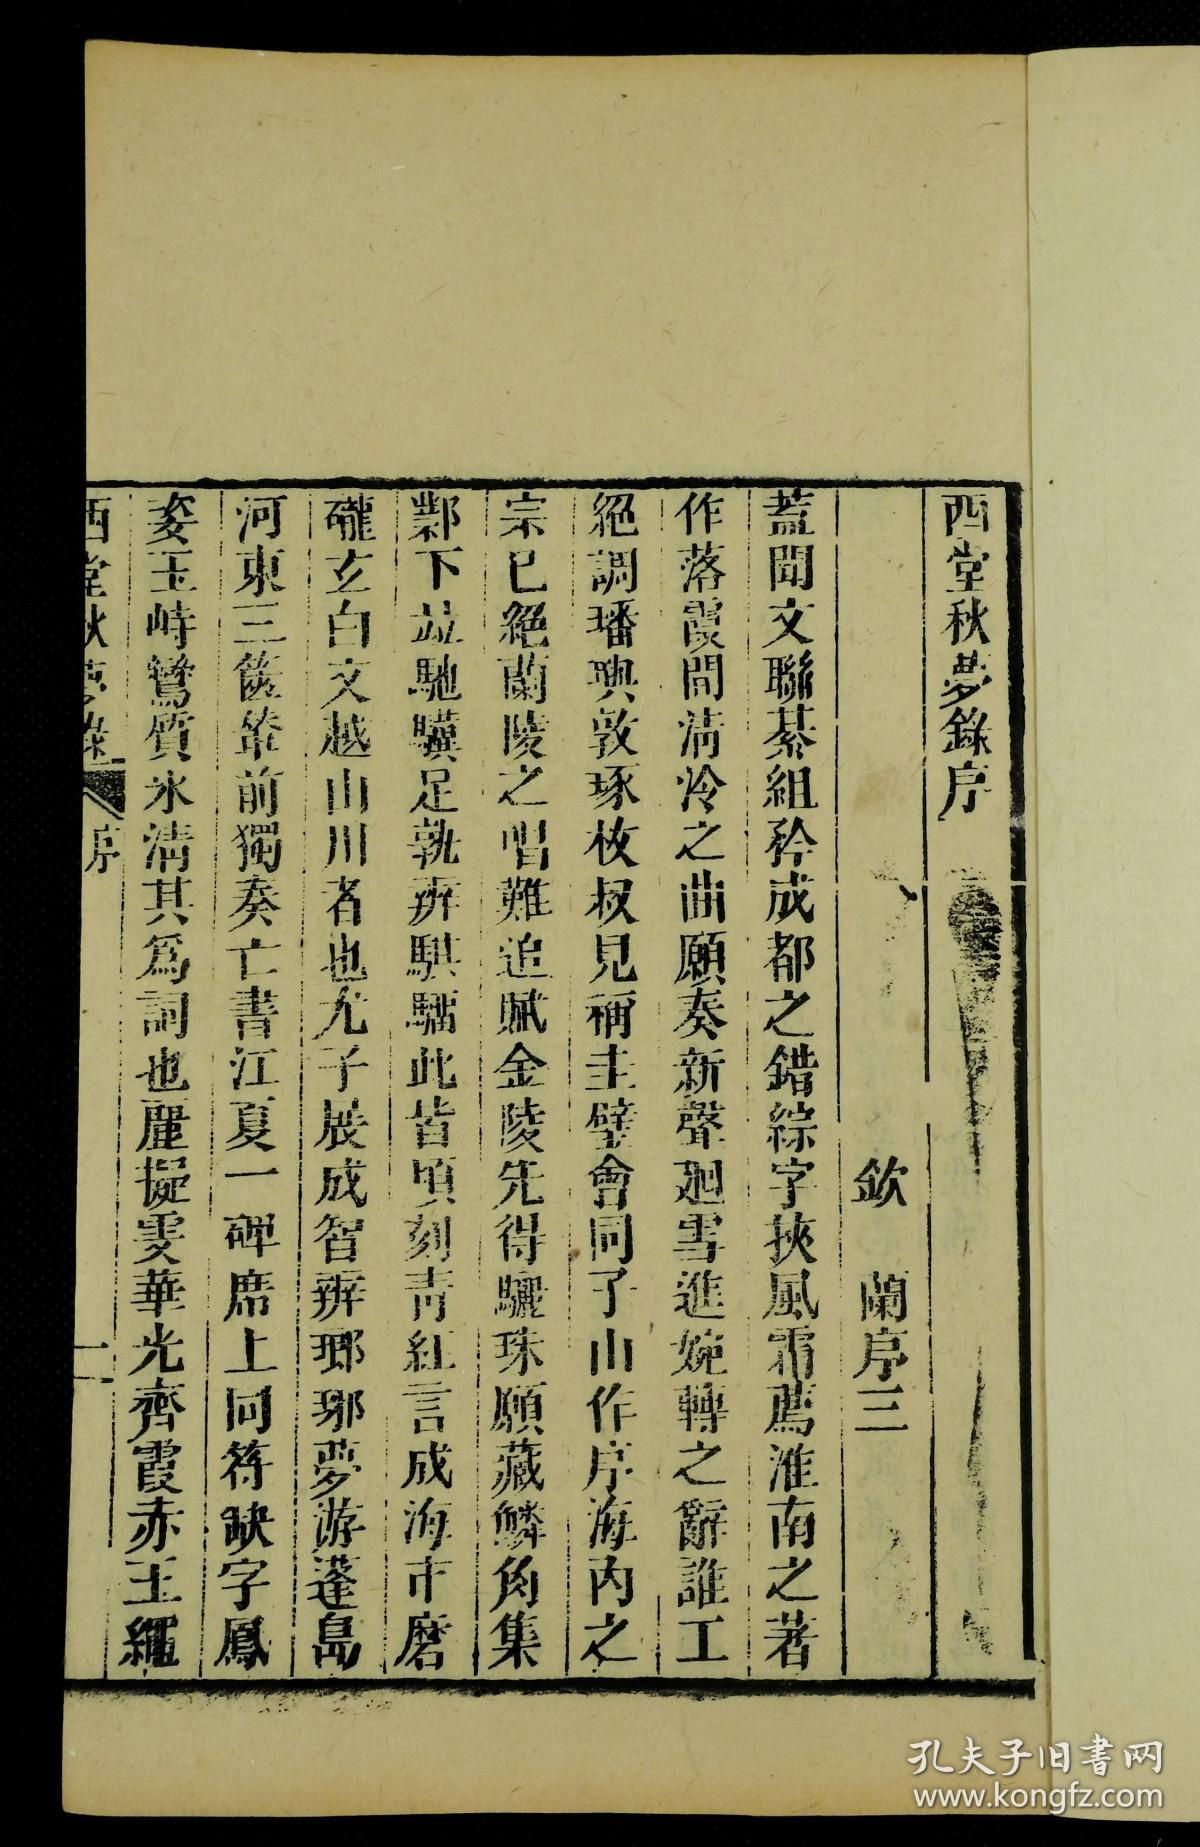 西堂秋夢錄序
欽蘭序三
蓋聞文聯綦組矜成都之錯綜字挾風霜薦淮南之著
作落霞間清泠之曲願奏新聲廻雪進婉轉之辭誰工
絕調璠璵敦琢枚叔見稱圭璧會同子山作序海內之
宗已絕蘭陵之唱難追賦金陵先得驪珠願藏鱗角集
鄴下竝馳驥足孰辨騏騮此皆頃刻靑紅言成海市磨
礲玄白文越山川者也尤子展成智辨瑯琊夢游蓬島
河東三篋筆前獨奏亡書江夏一碑席上同符缺字鳳
姿玉峙鸞質氷清其爲詞也麗擬雯華光齊霞赤玉繩
西堂秋夢錄
序
一
孔夫子旧书网
www.kongfz.com